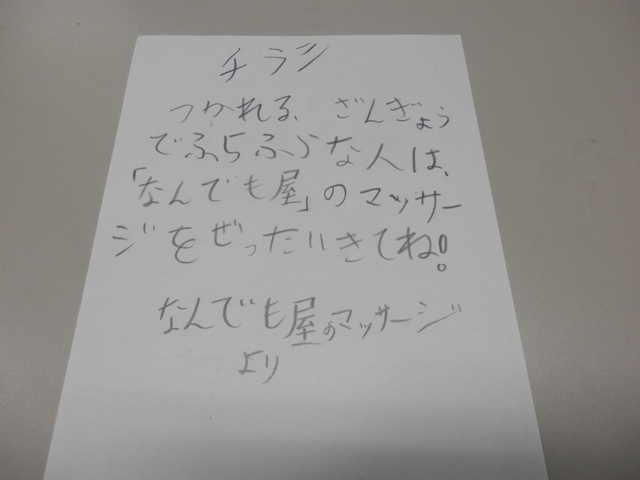 チラシ
つかれる、ざんぎょう
でふらふらな人は、
「なんでも屋」のマッサー
ジをぜったいきてね!
なんでも屋のマッサージ
より